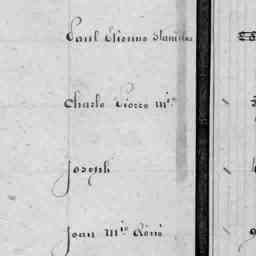 Paul Etienne Stanislas
Charle Pierre Mie
Joseph
Jean Mie René